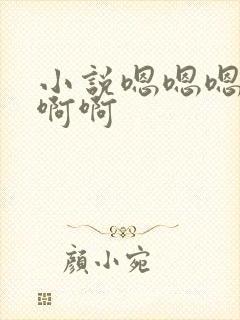 小說嗯嗯嗯
啊啊
顏小宛